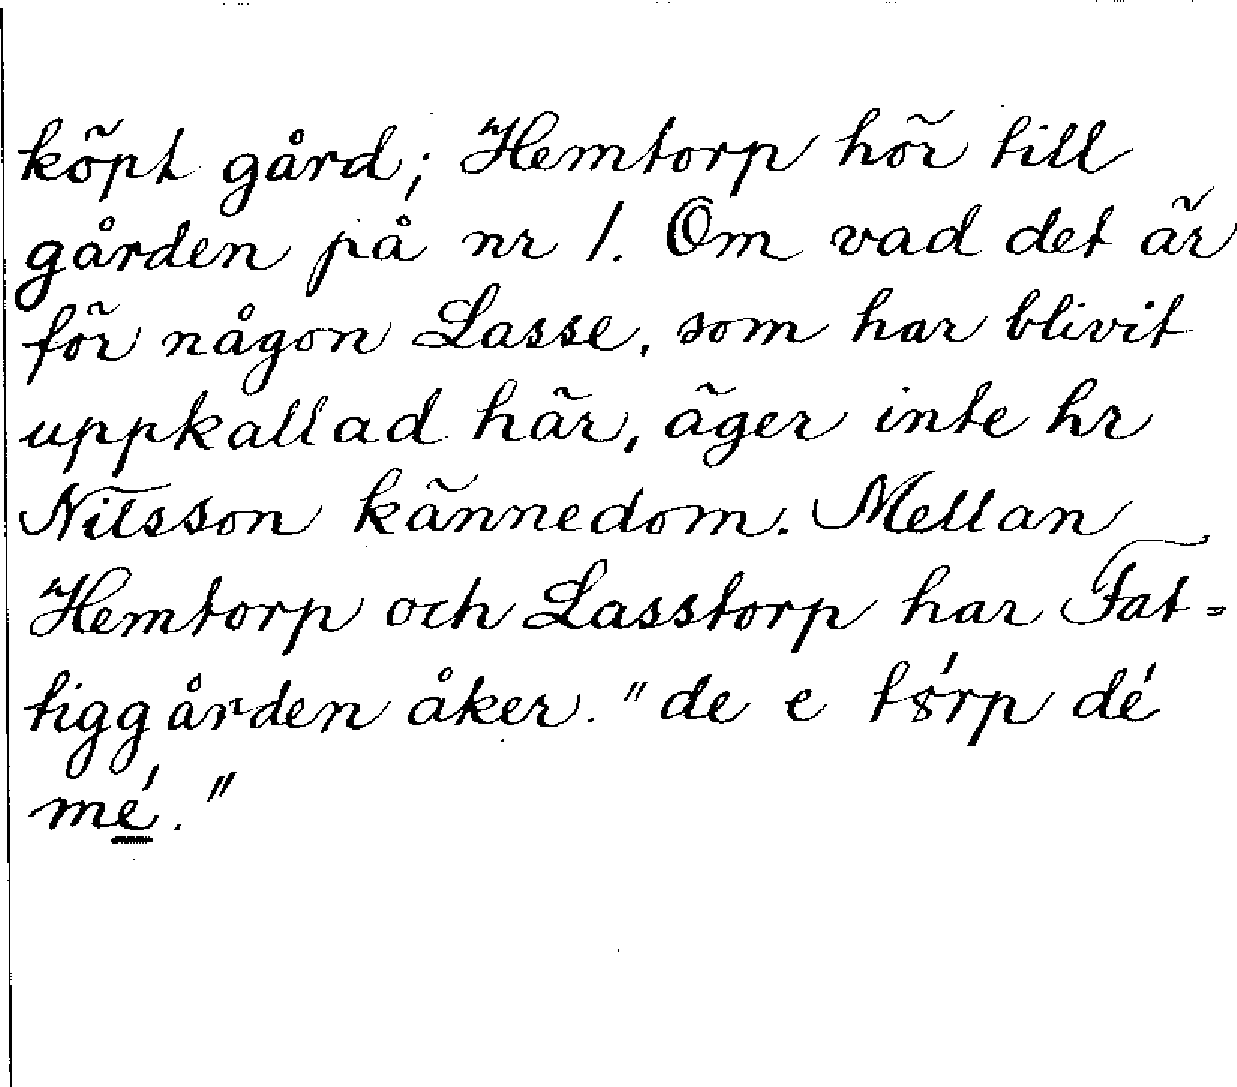 köpt gård; Hemtorp hör till
gården på nr 1. Om vad det är
för någon Lasse, som har blivit
uppkallad här, äger inte hr
Nilsson kännedom. Mellan
Hemtorp och Lasstorp har Fat-
tiggården åker. "de e tórp dé
mé."